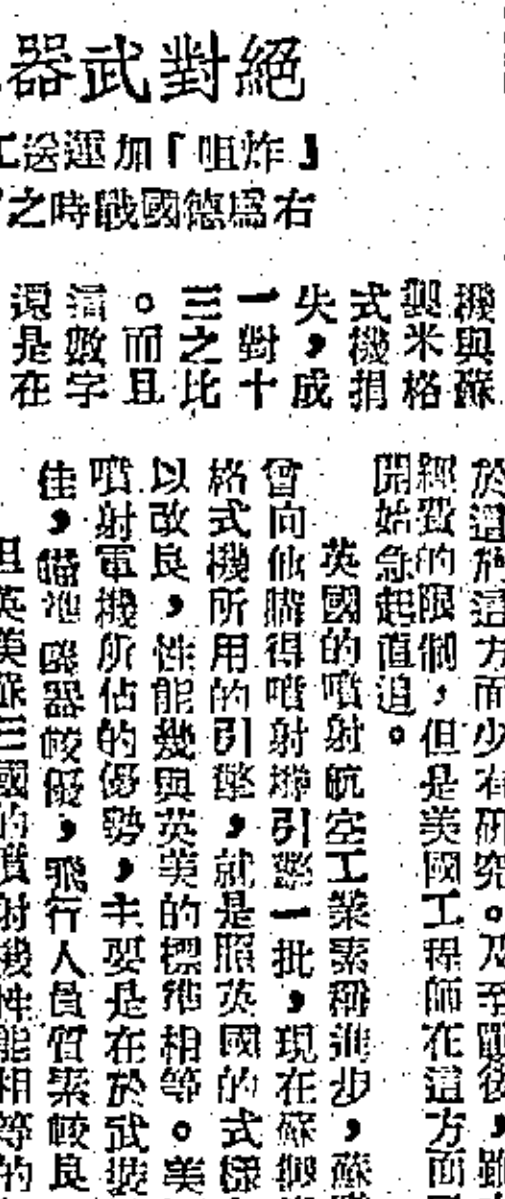 絕對武器
』炸咀「加運送工
右為德國戰時之
機與蘇
製米格
式機損
失，成
一對十
三之比
。而且
這數字
還是在
於這方面少有研究。及至戰後，雖
經費的限制，但是美國工程師在這方面
開始急起直追。
英國的噴射航空工業素稱進步，蘇
曾向他購得噴射機引擎一批，現在蘇
格式機所用的引擎，就是照英國的式樣
以改良，性能幾與英美的標準相等。美
噴射電機所佔的優勢，主要是在於武裝
佳，瞄準儀器較優，飛行人員質素較良
但英美蘇三國的噴射機性能相等的